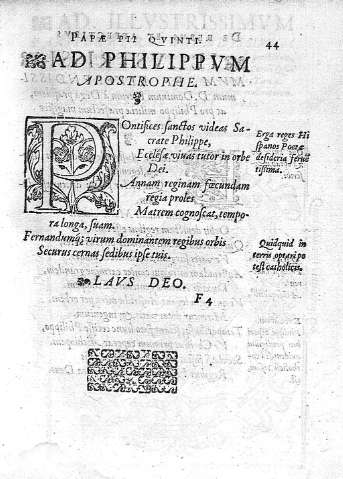 PAPÆ PII QVINTI.
44
AD PHILIPPVM
APOSTROPHE.
POntifices sanctos videas Sa-
crate Philippe,
Ecclesæ viuas tutor in orbe
Dei.
Annam reginam fœcundam
regia proles
Matrem cognoscat, tempo-
ra longa, suam.
Fernandumq; virum dominantem regibus orbis
Securus cernas sedibus ipse tuis.
Erga reges Hi
spanos Poetæ
desideria ferue
tissima.
Quidquid in
terris optari po
test catholicis.
LAVS DEO.
F 4